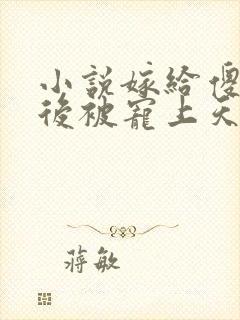 小說嫁給傻
後被寵上天
蔣敏